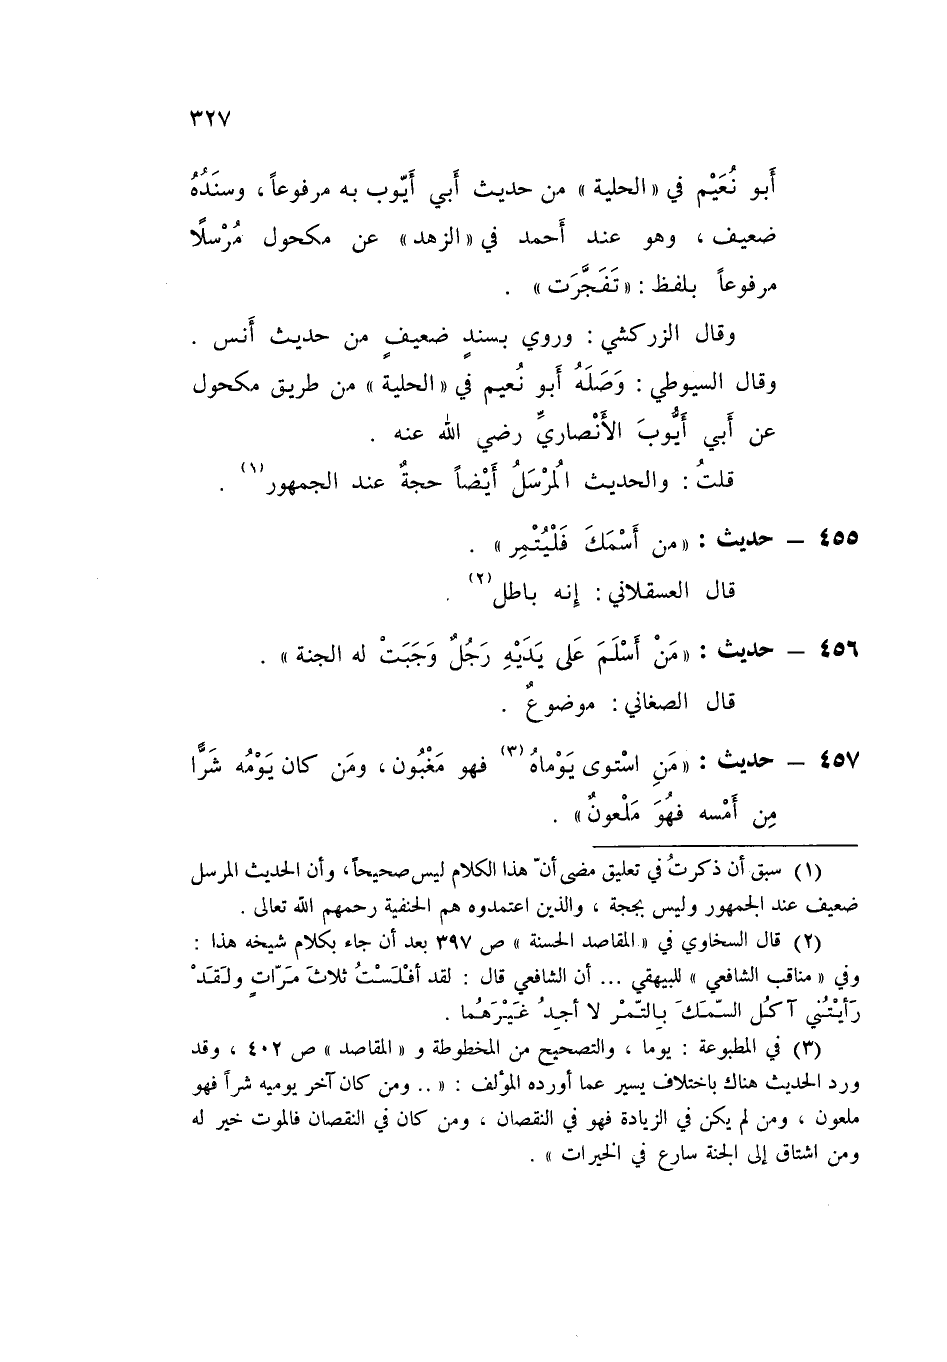 ٣٢٧
أَبو نُعَيْم في « الحلية » من حديث أَبي أَيّوب به مرفوعاً ، وسنَدُهُ
ضعيف ، وهو عند أَحمد في « الزهد » عن مكحول مُرْسلًا
مرفوعاً بلفظ : « تَفَجَّرَت » .
وقال الزركشي : وروي بسندٍ ضعيفٍ من حديث أَنس .
وقال السيوطي : وَصَلَهُ أَبو نُعيم في « الحلية » من طريق مكحول
عن أَبي أَيُّوبَ الأَنْصاريِّ رضي الله عنه .
قلتُ : والحديث المُرْسَلُ أَيْضاً حجةٌ عند الجمهور (١) .
٤٥٥ – حديث : « من أَسْمَكَ فَلْيُتْمِر » .
قال العسقلاني : إنه باطل (٢) .
٤٥٦ – حديث : « مَنْ أَسْلَمَ عَلى يَدَيْهِ رَجُلٌ وَجَبَتْ له الجنة » .
قال الصغاني : موضوعٌ .
٤٥٧ – حديث : « مَنِ اسْتوى يَوْماهُ (٣) فهو مَغْبُون ، ومَن كان يَوْمُه شَرًّا
مِن أَمْسه فهُوَ مَلْعونٌ » .
(١) سبق أن ذكرتُ في تعليق مضى أنّ هذا الكلام ليس صحيحاً ، وأن الحديث المرسل
ضعيف عند الجمهور وليس بحجة ، والذين اعتمدوه هم الحنفية رحمهم الله تعالى .
(٢) قال السخاوي في « المقاصد الحسنة » ص ٣٩٧ بعد أن جاء بكلام شيخه هذا :
وفي « مناقب الشافعي » للبيهقي ... أن الشافعي قال : لقد أفْلَسْتُ ثلاثَ مَرّاتٍ ولَقَدْ
رَأيْتُني آكُل السّمَكَ بِالتّمْر لا أجِدُ غَيْرَهُما .
(٣) في المطبوعة : يوما ، والتصحيح من المخطوطة و « المقاصد » ص ٤٠٢ ، وقد
ورد الحديث هناك باختلاف يسير عما أورده المؤلف : « .. ومن كان آخر يوميه شراً فهو
ملعون ، ومن لم يكن في الزيادة فهو في النقصان ، ومن كان في النقصان فالموت خير له
ومن اشتاق إلى الجنة سارع في الخيرات » .